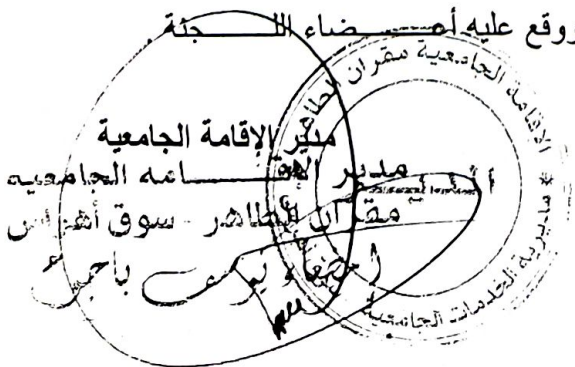 وقع عليه أعـــضاء اللـــجنة
مدير الإقامة الجامعية
مدير الإقـــامة الجامعية
مقران الطاهر - سوق أهراس
إمضاء يوسف
الإقامة الجامعية مقران الطاهر * مديرية الخدمات الجامعية